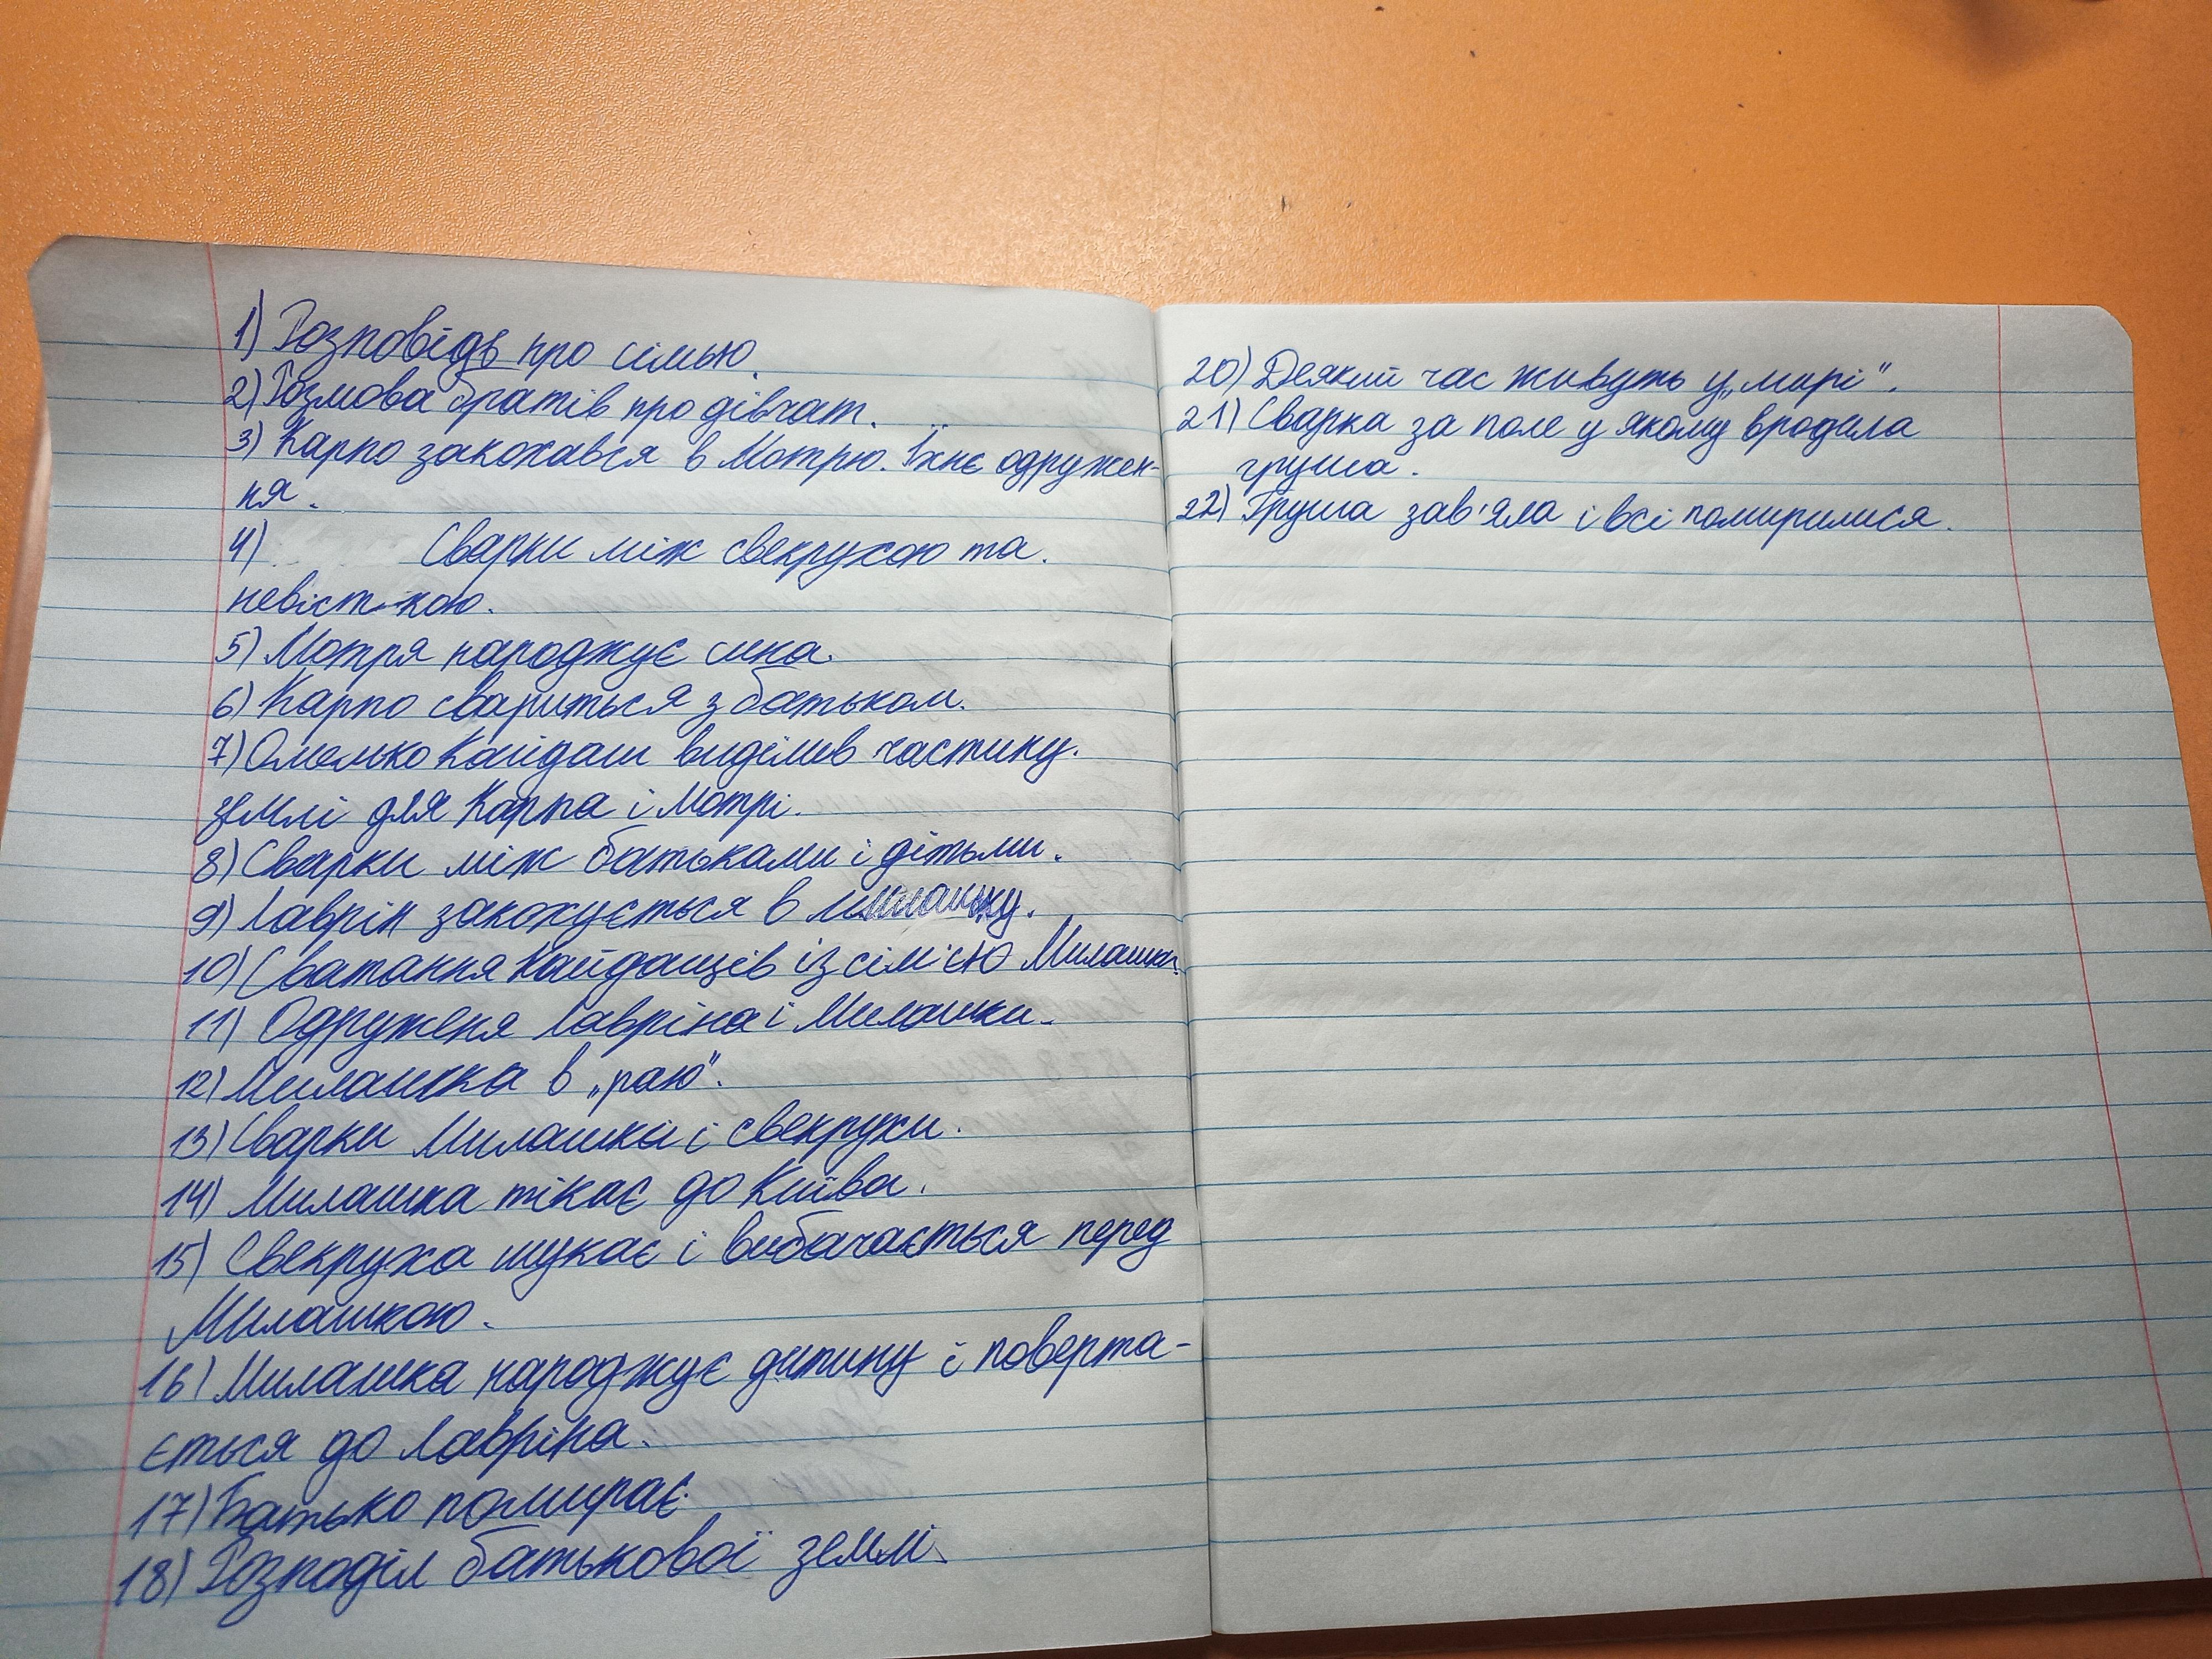 1) Розповідь про сімью.
2) Розмова братів про дівчат.
3) Карпо закохався в Мотрю. Їхнє одружен-
ня.
4) Сварки між свекрухою та.
невісткою.
5) Мотря народжує сина.
6) Карпо свариться з батьком.
7) Омелько Кайдаш виділив частину.
землі для Карпа і Мотрі.
8) Сварки між батьками і дітьми.
9) Лаврін закохується в Милашку.
10) Сватання Кайдашів із сім'єю Милашки.
11) Одруженя Лавріна і Милашки.
12) Милашка в „раю".
13) Сварки Милашка і свекрухи.
14) Милашка тікає до Київа.
15) Свекруха шукає і вибачається перед
Милашкою.
16) Милашка народжує дитину і поверта-
ється до Лавріна.
17) Батько помирає.
18) Розподіл батькової землі.
20) Деякий час живуть у „мирі".
21) Сварка за поле у якому вродила
груша.
22) Груша зав'яла і всі помирилися.